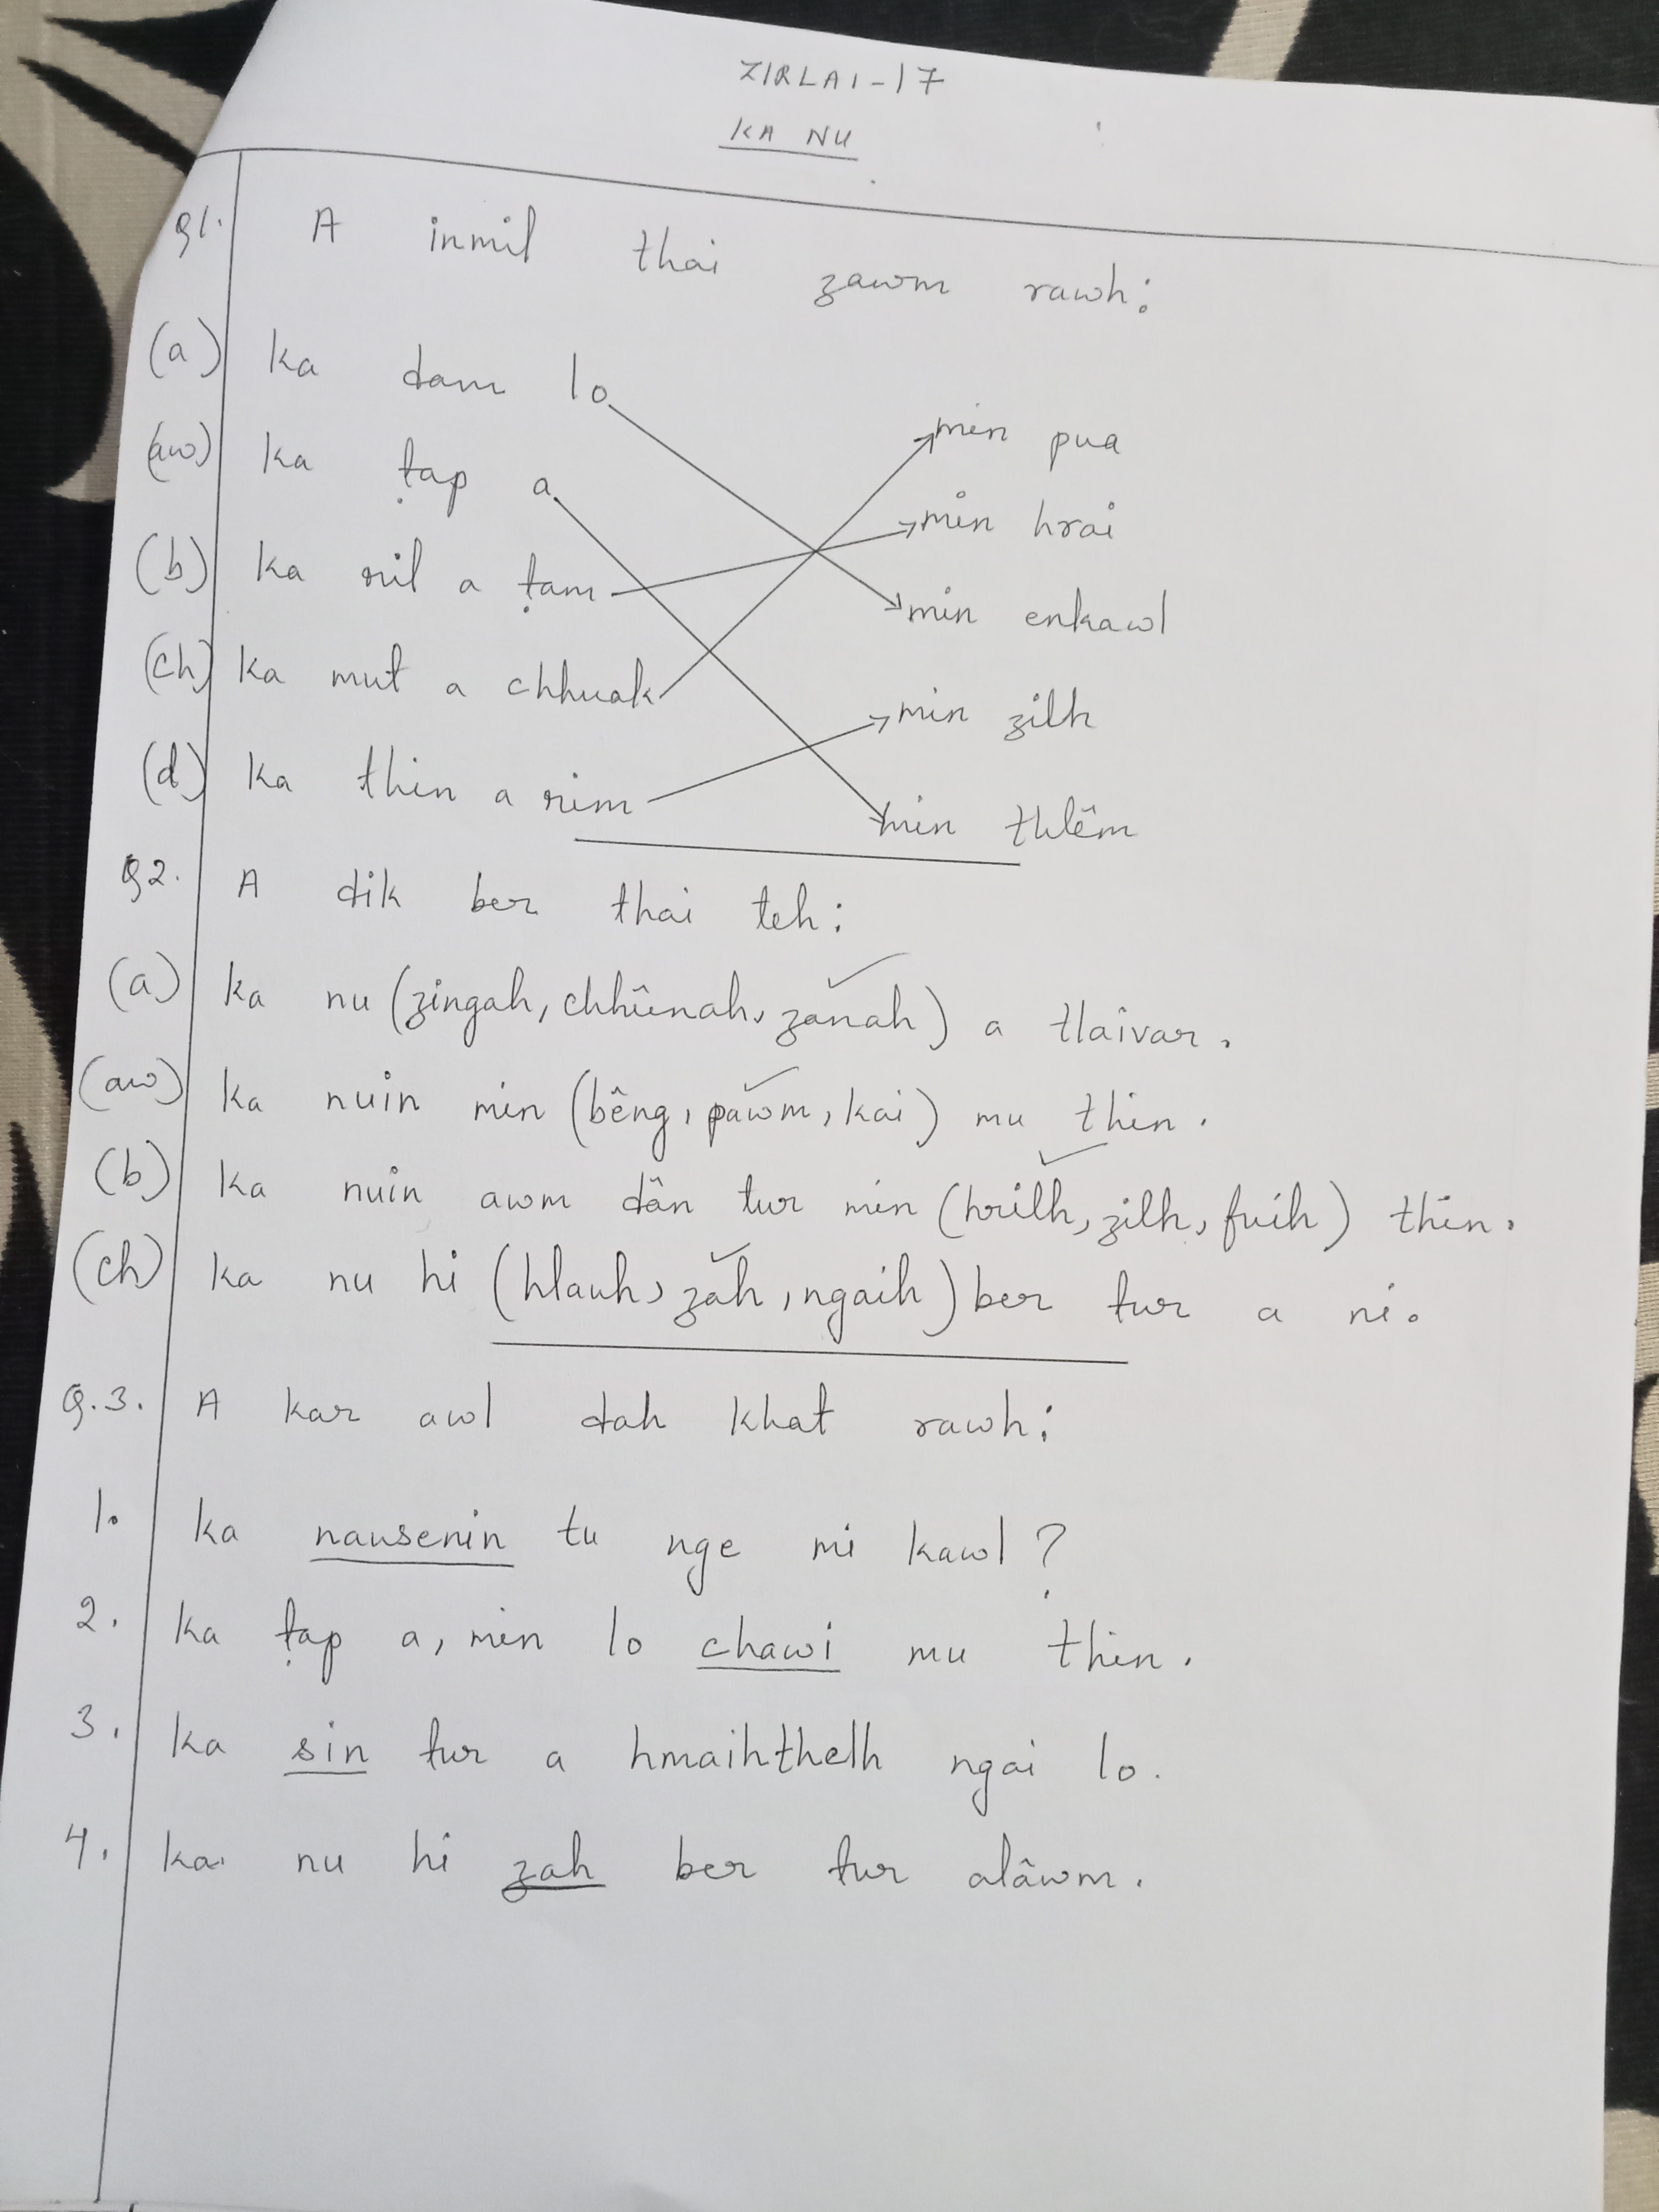 ZIRLAI-17
KA NU
Q1. A inmil thai zawm rawh:
(a) ka dam lo
min pua
(aw) ka ṭap a
min hrai
(b) ka ril a ṭam
min enkawl
(ch) ka mut a chhuak
min zilh
(d) ka thin a rim
min thlêm
Q2. A dik ber thai teh:
(a) ka nu (zingah, chhûnah, zanah) a tlaivar.
(aw) ka nuin min (bêng, pawm, kai) mu thin.
(b) ka nuin awm dân tur min (hrilh, zilh, fuih) thin.
(ch) ka nu hi (hlauh, zah, ngaih) ber tur a ni.
Q.3. A kar awl dah khat rawh:
1. ka nausenin tu nge mi kawl?
2. ka ṭap a, min lo chawi mu thin.
3. ka sin tur a hmaihthelh ngai lo.
4. ka nu hi zah ber tur alâwm.